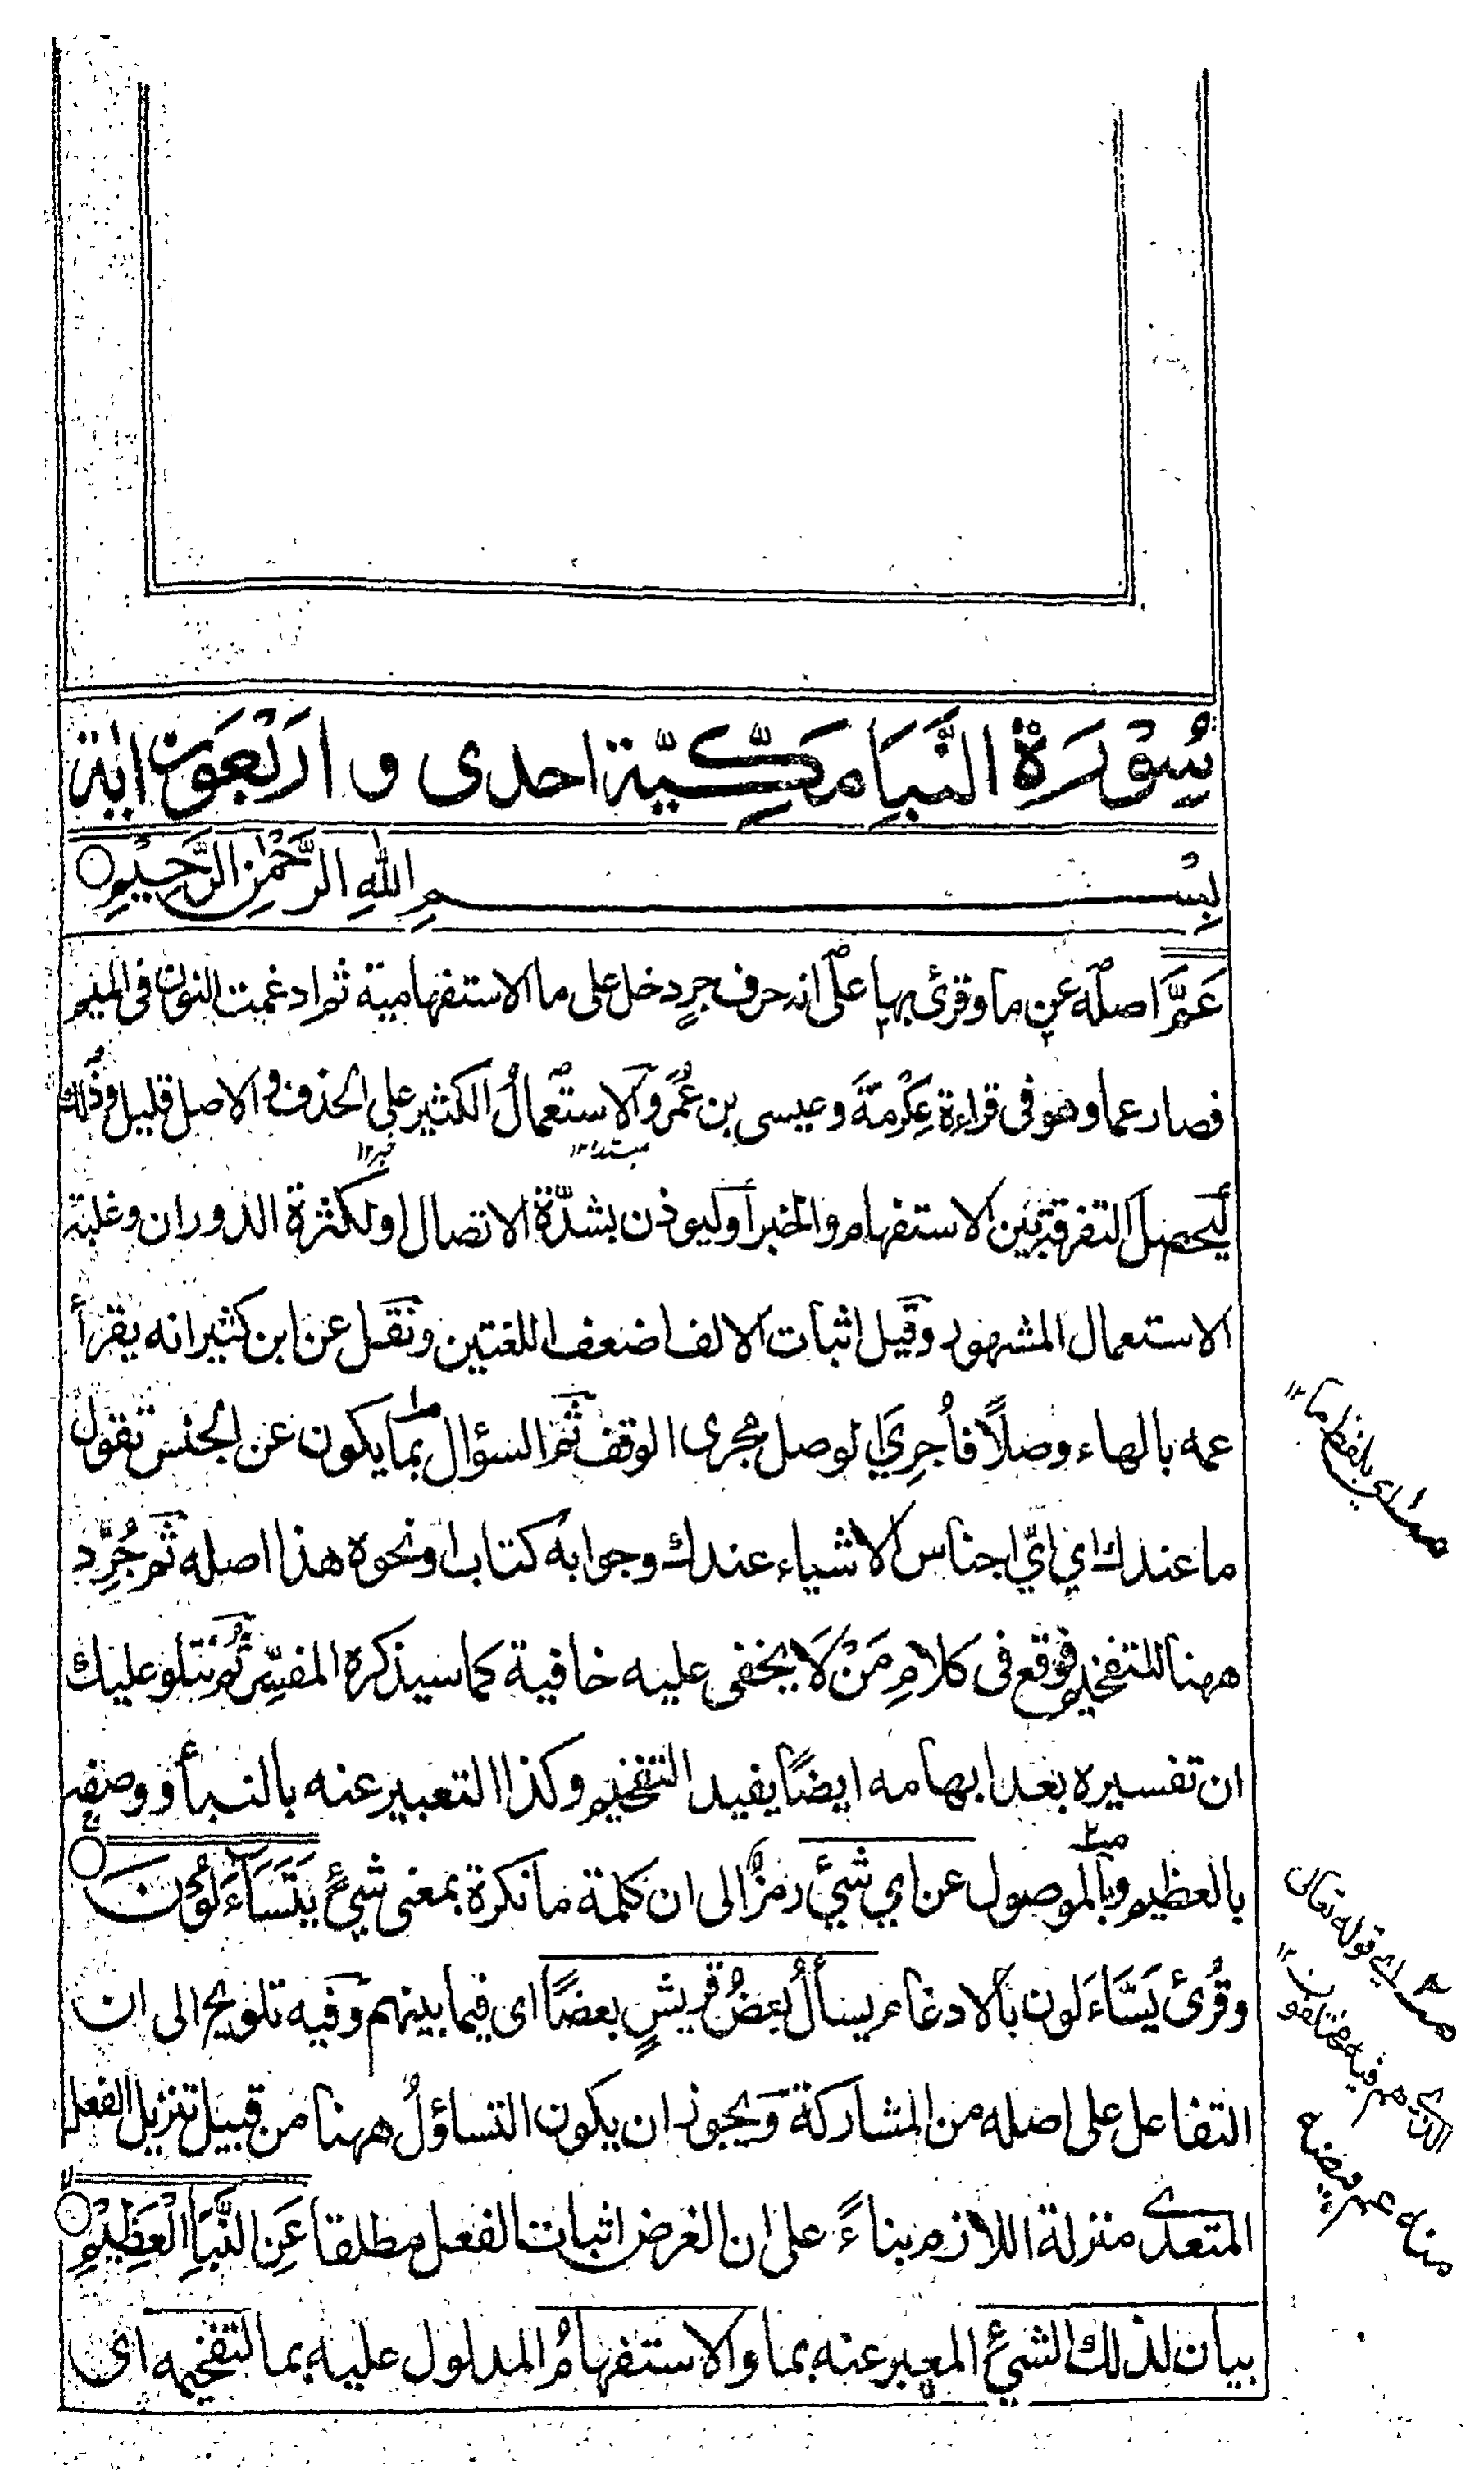 سُوْرَةُ النَّبَاِ مَكِّيَّة احدى و اَرْبَعَوْن اية
بِسْمِ اللّٰهِ الرَّحْمٰنِ الرَّحِيْمِ
عَمَّ اصله عن ما وقرئ بها على انه حرف جرٍ دخل على ما الاستفهامية ثم ادغمت النون فى الميم
فصار عما وهو فى قراءة عِكْرمَةَ وعيسى بن عُمَر والاستعمالُ الكثير على الحذف والاصل قليل وذلك
مبتدا١٢ خبر١٢
ليحصل التفرقة بين الاستفهام والخبر أو ليوذن بشدّة الاتصال او لكثرة الدوران وغلبة
الاستعمال المشهور وقيل اثبات الالف اضعف اللغتين ونقل عن ابن كثير انه يقرأ
عمه بالهاء وصلًا فاُجرِيَ الوصل مجرى الوقف ثم السؤال بما يكون عن الجنس تقول
ما عندك اي ايّ اجناس الاشياء عندك وجوابه كتاب او نحوه هذا اصله ثم جُرِّد
ههنا للتفخيم فوقع فى كلامِ مَنْ لَا يخفى عليه خافية كما سيذكره المفسِّر ثم نتلو عليك
ان تفسيره بعد ابهامه ايضًا يفيد التفخيم وكذا التعبير عنه بالنبأ ووصفه
بالعظيم وبالموصول عن اي شئٍ رمزٌ الى ان كلمة ما نكرة بمعنى شئٍ يَتَسَآءَلُوْنَ
وقُرئ يَسَّاءَلون بالادغام يسألُ بعضُ قريشٍ بعضًا اى فيما بينهم وفيه تلويح الى ان
التفاعل على اصله من المشاركة ويجوز ان يكون التساؤلُ ههنا من قبيل تنزيل الفعل
المتعدى منزلة اللازم بناءً على ان الغرض اثبات الفعل مطلقا عَنِ النَّبَاِ الْعَظِيْمِ
بيان لذلك الشئ المعبر عنه بما والاستفهامُ المدلول عليه بما لتفخيمه اى
اي بلفظ ما ١٢
اي قوله تعالى
الذي هم فيه مختلفون ١٢